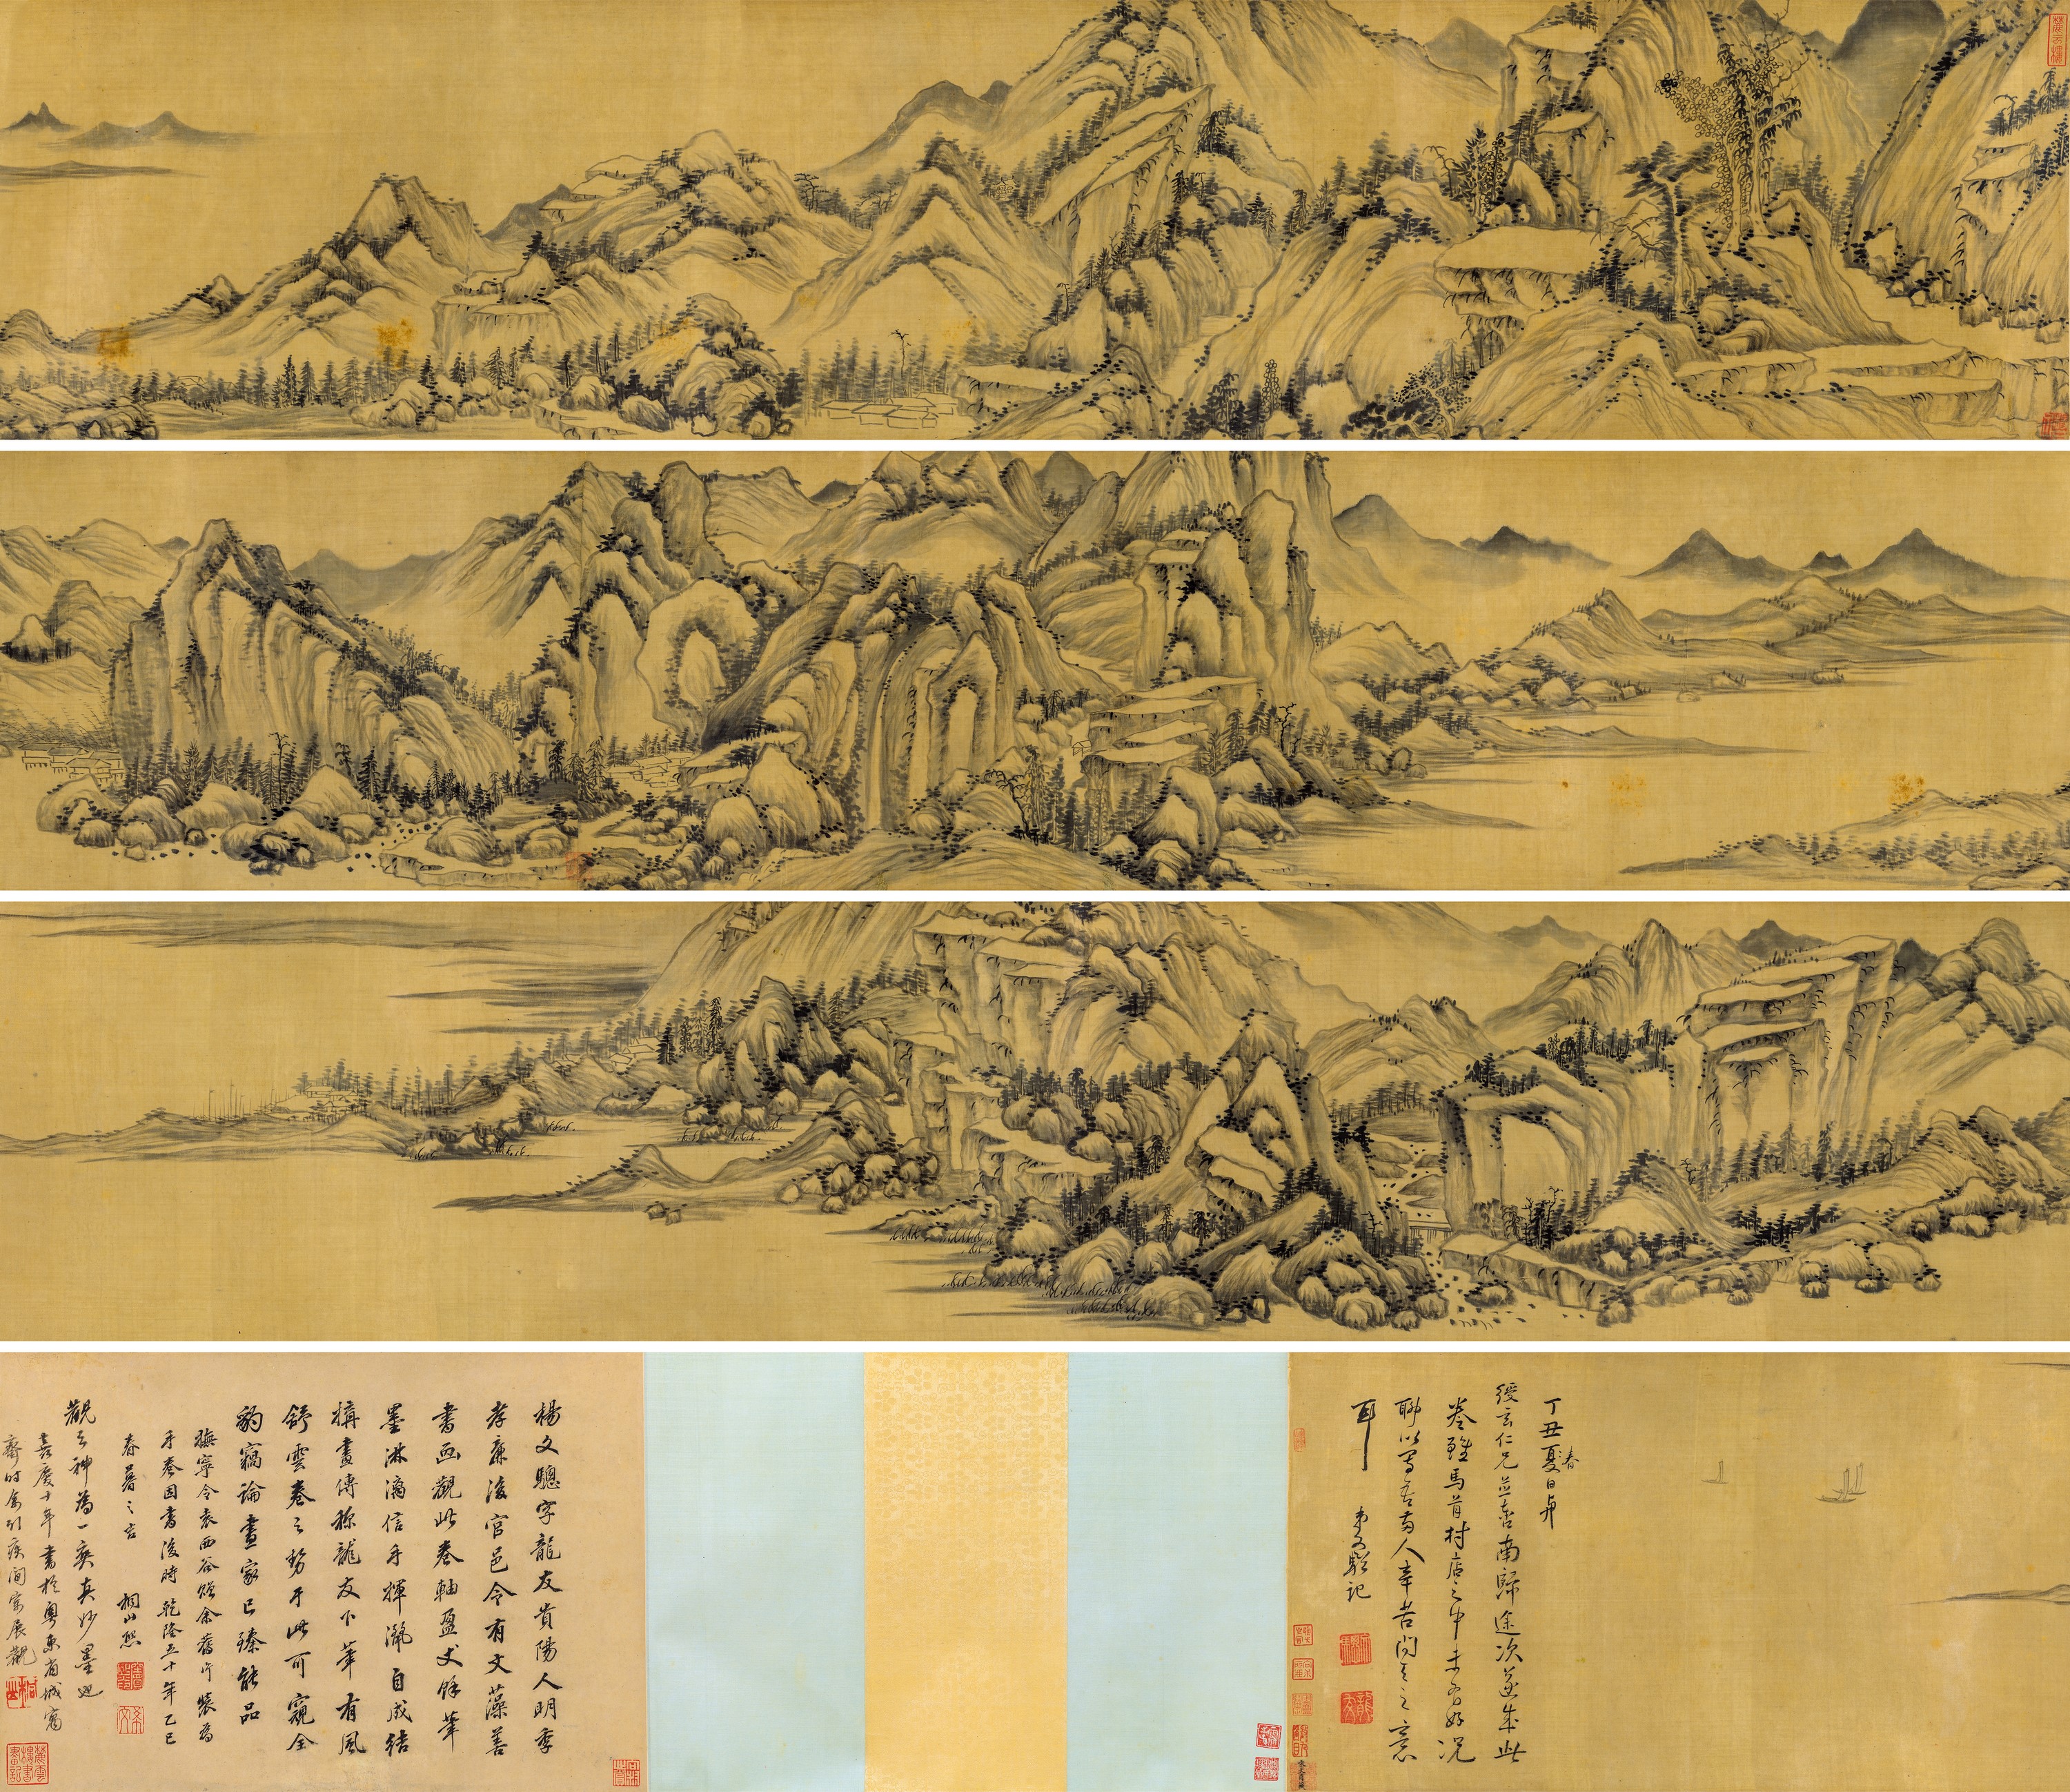 丁丑夏日舟
春
綬玄仁兄並舍南歸途次遂出此
卷雖馬首村店之中未有好況
聊以寫吾高人辛苦閒之之意
耳
弟文驄記
楊文驄字龍友貴陽人明季
孝廉後官邑令有文藻善
書画觀此卷軸盈丈餘筆
墨淋漓信手揮灑自成結
構畫傳称龍友下筆有風
舒雲卷之勢于此可窺全
豹竊論畫家已臻能品
撫寧令袁西谷贈余舊少裝為
手卷因書後時乾隆五十年乙巳
春暮之吉
桐山熙
觀之神為一爽真妙墨也
嘉慶十年書於粵東省城寓
齋時余引疾閒窗展觀